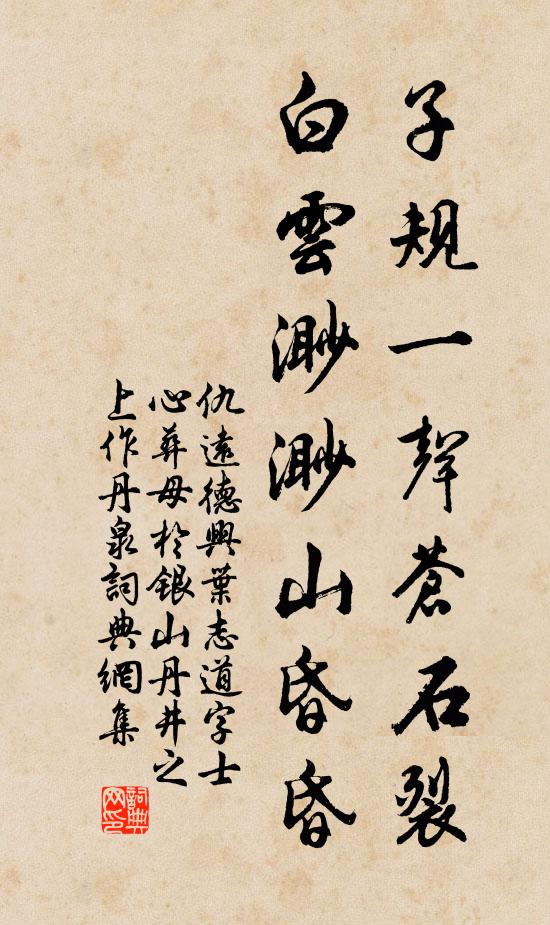 子規一聲蒼石裂
白雲渺渺山昏昏
仇遠德興葉志道字士
心葬母於銀山丹井之
上作丹泉詞典網集
詞典網印